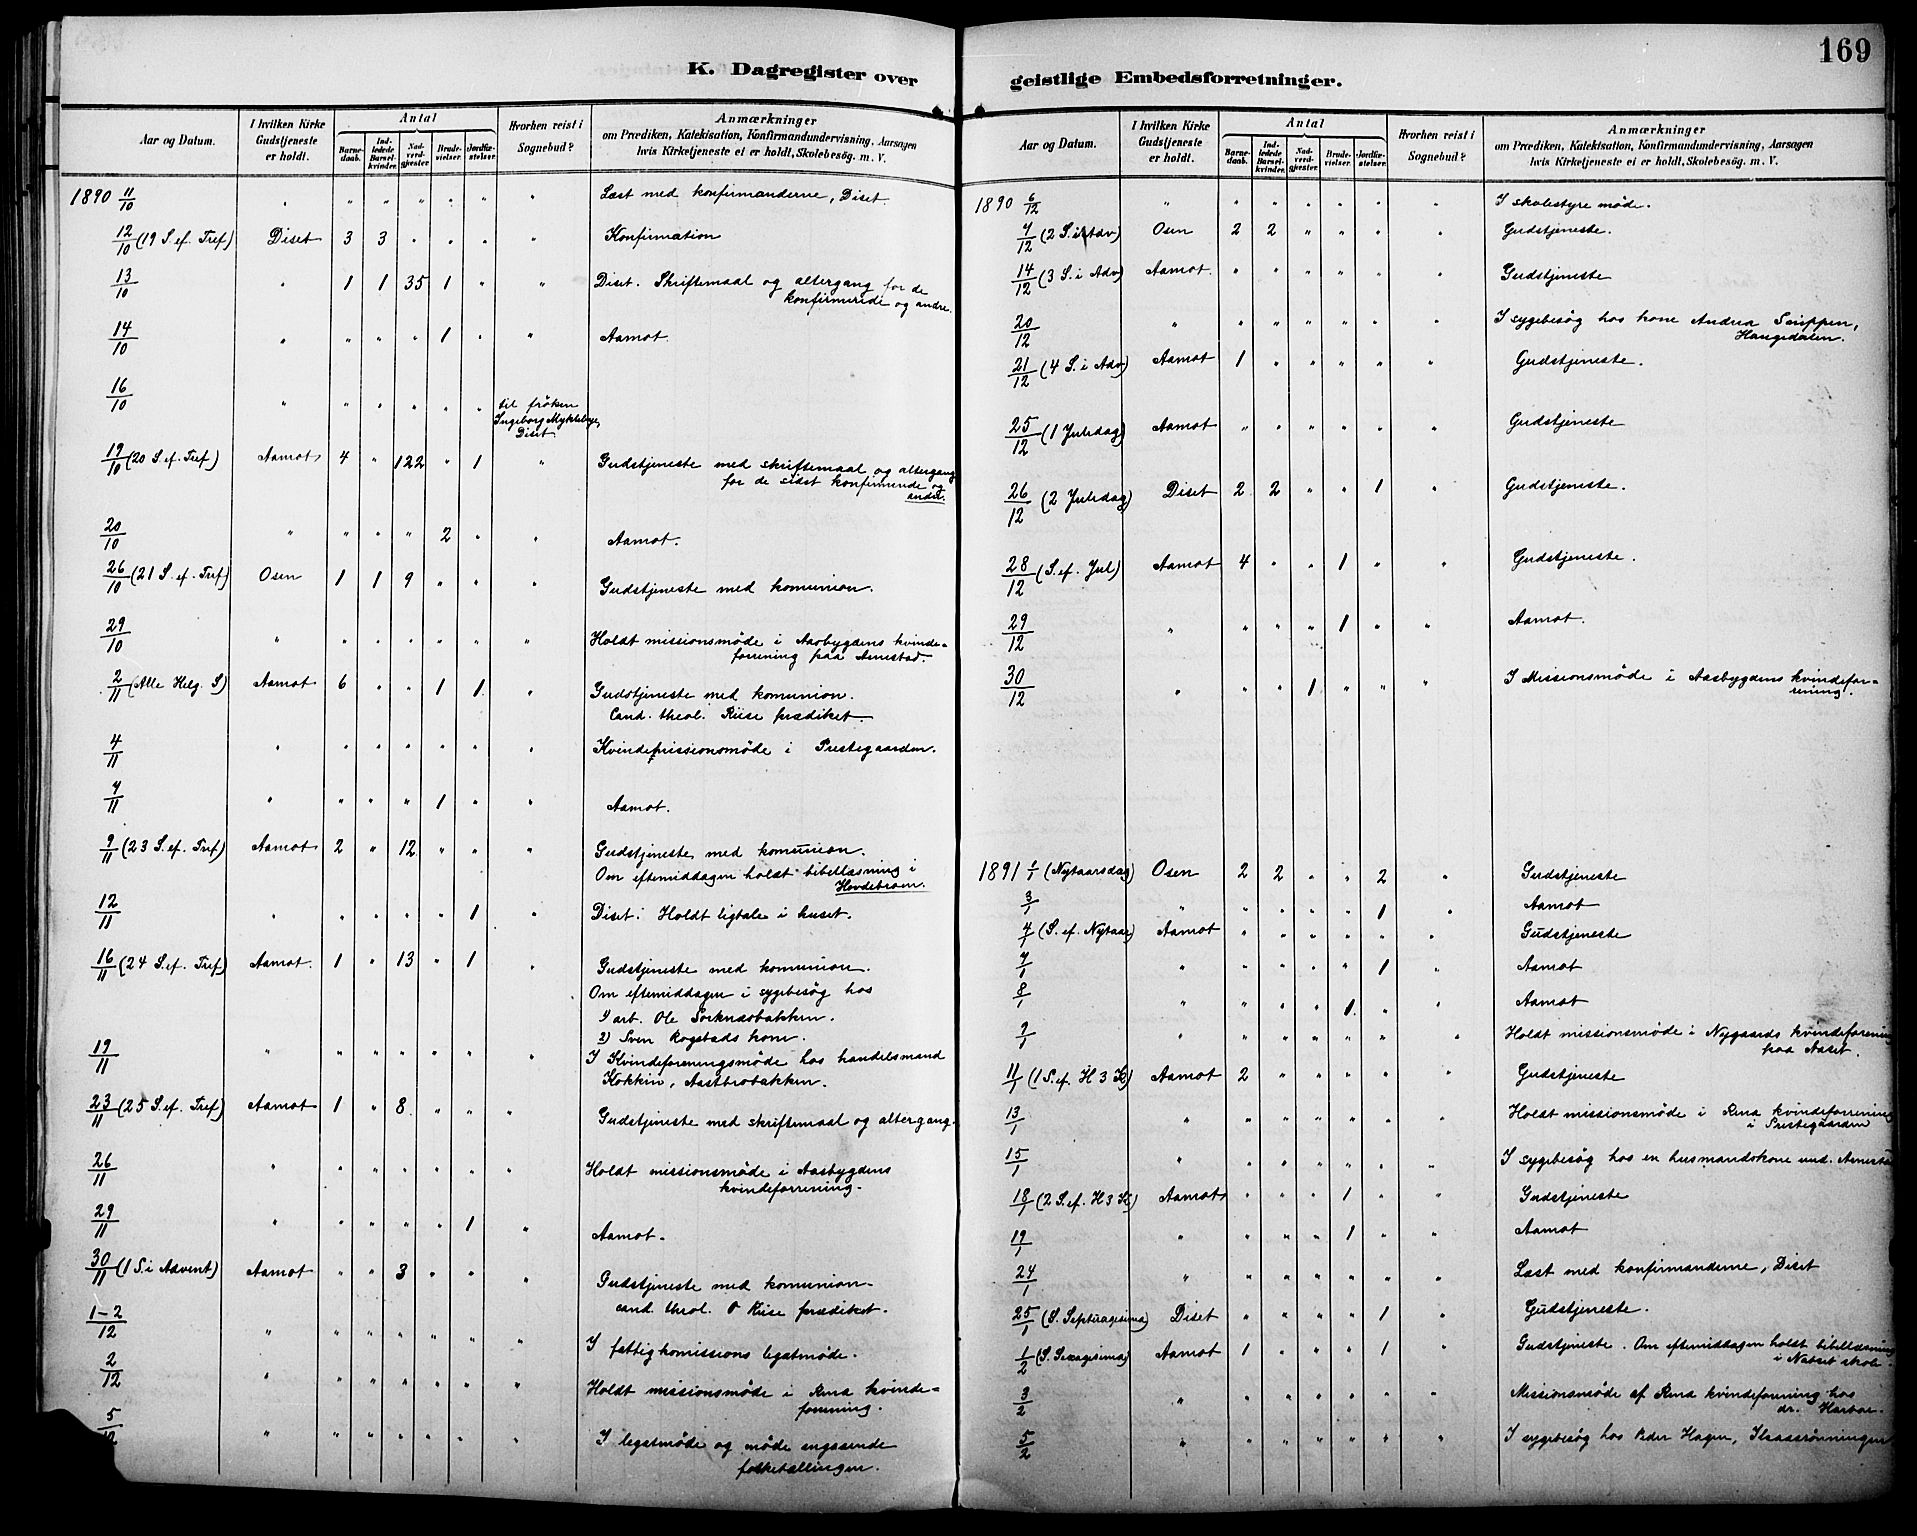 169
K. Dagregister over geistlige Embedsforretninger.
Aar og Datum. | I hvilken Kirke Gudstjeneste er holdt. | Antal | Barnedaab. | Indledede Barselkvinder. | Nadverdgjester | Brudevielser. | Jordfæstelser. | Hvorhen reist i Sognebud? | Anmærkninger om Prædiken, Katekisation, Konfirmandundervisning, Aarsagen hvis Kirketjeneste ei er holdt, Skolebesög. m. V.
1890 11/10 " " " " " " " Læst med konfirmanderne, Diset
12/10 (19 S. ef. Tref) Diset 3 3 " " " " Konfirmation
13/10 " 1 1 35 1 " " Diset. Skriftemaal og altergang for de
konfirmerede og andre.
14/10 " " " " 1 " " Aamot.
16/10 " " " " " " til fröken
Ingeborg Myklebye,
Diset
19/10 (20 S. ef. Tref) Aamot 4 " 122 " 1 " Gudstjeneste med skriftemaal og altergang
for de sidst konfirmerede og
andre.
20/10 " " " " 2 " " Aamot.
26/10 (21 S. ef. Tref) Osen 1 1 9 " " " Gudstjeneste med komunion.
29/10 " " " " " " " Holdt missionsmöde i Aasbygdens kvinde-
forening paa Arnestad.
2/11 (Alle Helg. S) Aamot 6 " " 1 1 " Gudstjeneste med komunion.
Cand. theol. Riise prædiket.
4/11 " " " " " " " Kvindemissionsmöde i Prestegaarden.
7/11 " " " " 1 " " Aamot.
9/11 (23 S. ef. Tref) Aamot 2 " 12 " " " Gudstjeneste med komunion.
Om eftemiddagen holdt bibellæsning i
12/11 " " " " " 1 " Diset: Holdt ligtale i huset.
16/11 (24 S. ef. Tref) Aamot. 1 " 13 " 1 " Gudstjeneste med komunion.
Om eftemiddagen i sygebesög hos
1) arb. Ole Sorknæsbakken.
2) Sven Rogstads kone.
19/11 " " " " " " " I Kvindeforeningsmöde hos handelsmand
Kokkin, Aastabrobakken.
23/11 (25 S. ef. Tref) Aamot 1 " 8 " " " Gudstjeneste med skriftemaal og altergang.
26/11 " " " " " " " Holdt missionsmöde i Aasbygdens
kvindeforening.
29/11 " " " " " 1 " Aamot.
30/11 (1 S. i Advent) Aamot " " 3 " " " Gudstjeneste med komunion.
cand. theol. O Riise prædiket.
1-2/12 " " " " " " " I fattigkomissions legatmöde.
2/12 " " " " " " " Holdt missionsmöde i Rena kvinde-
forening.
5/12 " " " " " " " I legatmöde og möde angaaende
folketællingen.
Aar og Datum. | I hvilken Kirke Gudstjeneste er holdt. | Antal | Barnedaab. | Indledede Barselkvinder. | Nadverdgjester. | Brudevielser. | Jordfæstelser. | Hvorhen reist i Sognebud? | Anmærkninger om Prædiken, Katekisation, Konfirmandundervisning, Aarsagen hvis Kirketjeneste ei er holdt, Skolebesög. m. V.
1890 6/12 " " " " " " " I skolestyre möde.
7/12 (2 S. i Adv) Osen 2 2 " " " " Gudstjeneste.
14/12 (3 S. i Adv) Aamot. " " " " " " Gudstjeneste
20/12 " " " " " " " I sygebesög hos kone Andrea
21/12 (4 S. i Adv) Aamot 1 " " " " " Gudstjeneste.
25/12 (1 Juledag) Aamot " " " " " " Gudstjeneste
26/12 (2 Juledag) Diset 2 2 " " 1 " Gudstjeneste.
28/12 (S. ef. Jul) Aamot 4 " " 1 " " Gudstjeneste.
29/12 " " " " 1 " " Aamot.
30/12 " " " 1 " " " I Missionsmöde i Aasbygdens kvindefor-
rening.
1891 1/1 (Nytaarsdag) Osen 2 2 " " 2 " Gudstjeneste
3/1 " " " " " 1 " Aamot
4/1 (S. ef. Nytaar) Aamot " " " " " " Gudstjeneste
7/1 " " " " " 1 " Aamot
8/1 " " " " 1 " " Aamot
9/1 " " " " " " " Holdt missionsmöde i Nygaards kvindeforening
paa Aaset.
11/1 (1 S. ef. H 3 K) Aamot 2 " " " " " Gudstjeneste
13/1 " " " " " " " Holdt missionsmöde i Rena kvindeforening
i Prestegaarden
15/1 " " " " " " " I sygebesög hos en husmandskone und. Arnestad
18/1 (2 S. ef. H 3 K) Aamot " " " 1 " " Gudstjeneste
19/1 " " " " 1 " " Aamot
24/1 " " " " " " " Læst med konfirmanderne, Diset
25/1 (S. Septuagesima) Diset " " " " 1 " Gudstjeneste.
1/2 (S. Sexagesima) Aamot 1 " " " 1 " Gudstjeneste. Om eftemiddagen holdt bibellæsning
i Nabset skole.
3/2 " " " " " " " Missionsmöde af Rena kvindeforening hos
dr. Harboe.
5/2 " " " " " " " I sygebesög hos Peder Hagen, Ilsaasrönningen